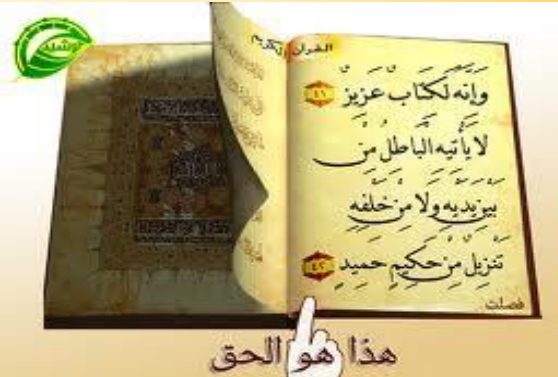 القرآن الكريم
وَإِنَّهُ لَكِتَابٌ عَزِيزٌ ٤١
لَا يَأْتِيهِ الْبَاطِلُ مِنْ
بَيْنِ يَدَيْهِ وَلَا مِنْ خَلْفِهِ
تَنْزِيلٌ مِنْ حَكِيمٍ حَمِيدٍ ٤٢
فصلت
هذا هو الحق